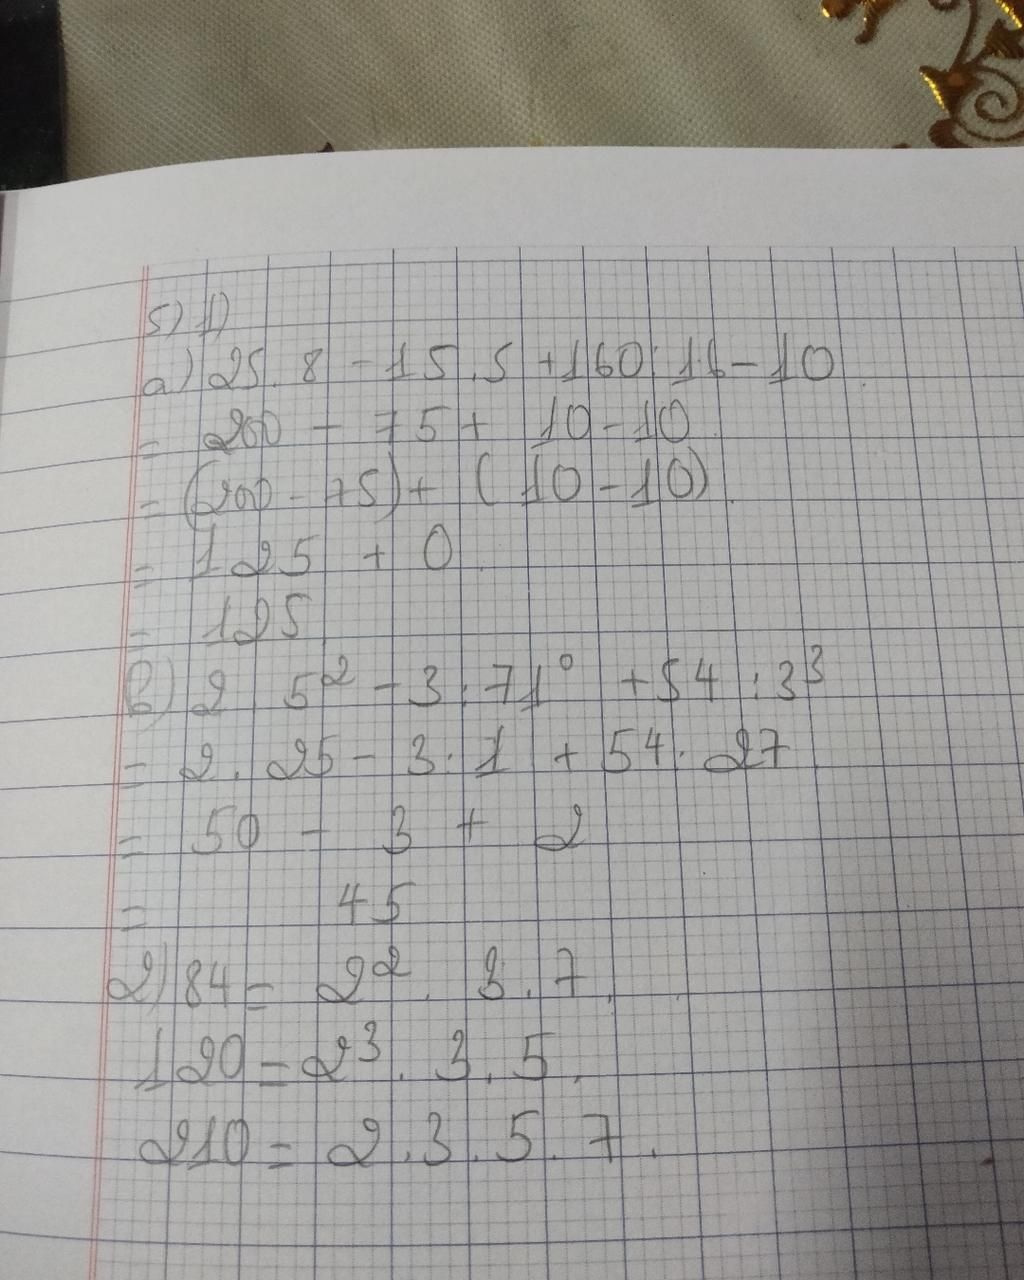 5) 1)
a) 25.8 - 15.5 + 160:16 - 10
= 200 - 75 + 10 - 10
= (200 - 75) + (10 - 10)
= 125 + 0
= 125
b) 2 5² - 3.71⁰ + 54 : 3³
= 2.25 - 3.1 + 54: 27
= 50 - 3 + 2
= 45
2) 84 = 2². 3.7.
120 = 2³.3.5.
210 = 2.3.5.7.